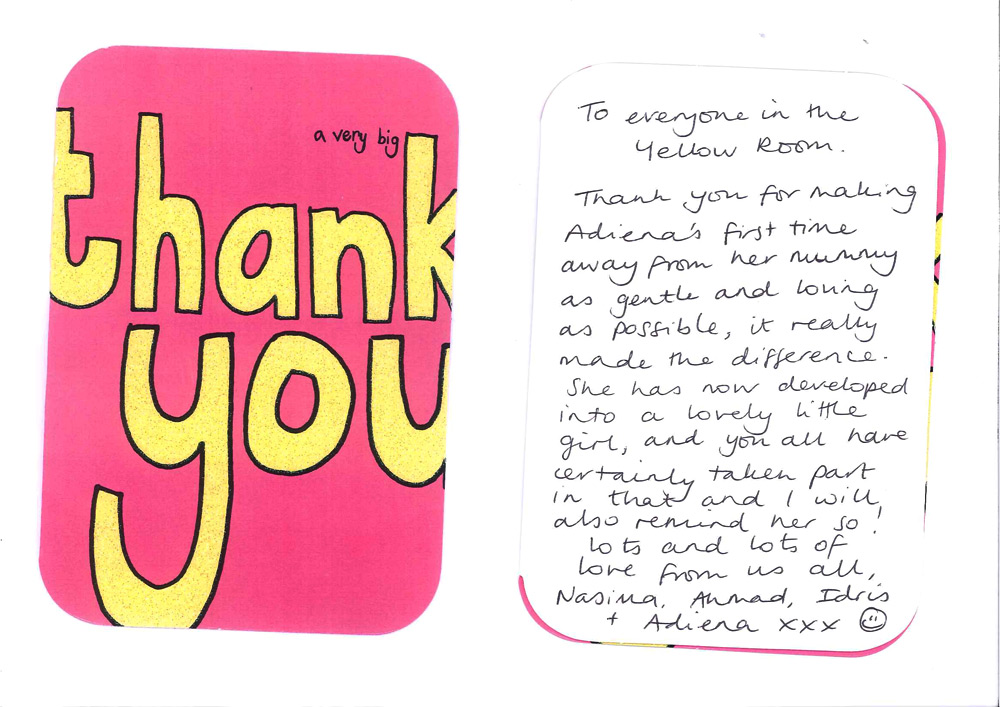 a very big
thank
you
To everyone in the
Yellow Room.
Thank you for making
Adiena's first time
away from her mummy
as gentle and loving
as possible, it really
made the difference.
She has now developed
into a lovely little
girl, and you all have
certainly taken part
in that and I will
also remind her so!
Lots and lots of
love from us all,
Nasima, Ahmad, Idris
+ Adiena xxx